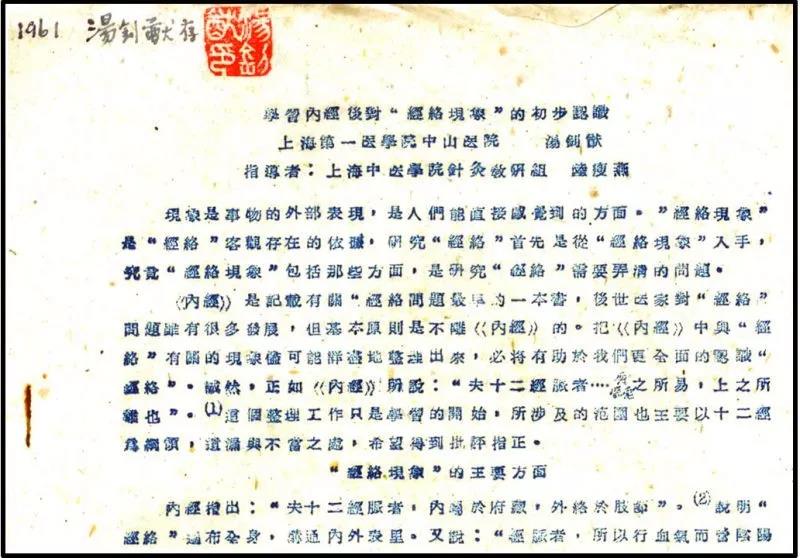 1961 湯釗猷存
湯釗猷印
學習內經後對“經絡現象”的初步認識
上海第一医學院中山医院 湯釗猷
指導者：上海中医學院針灸教研組 陸瘦燕
現象是事物的外部表現，是人們能直接感覺到的方面。”經絡現象”
是“經絡”客觀存在的依據，研究“經絡”首先是從“經絡現象”入手，
究竟“經絡現象”包括那些方面，是研究“經絡”需要弄清的問題。
《內經》是記載有關“經絡問題最早的一本書，後世医家對“經絡”
問題雖有很多發展，但基本原則是不離《內經》的。把《內經》中與“經
絡”有關的現象儘可能詳盡地整理出來，必将有助於我們更全面的認識“
經絡”。誠然，正如《內經》所說：“夫十二經脈者……之所易，上之所
難也”。(1)這個整理工作只是學習的開始，所涉及的范圍也主要以十二經
為綱領，遺漏與不當之處，希望得到批評指正。
“經絡現象”的主要方面
內經指出：“夫十二經脈者，內屬於府藏，外絡於肢節”。(2)說明“
經絡”遍布全身，溝通內外表里。又說：“經脈者，所以行血氣而營陰陽